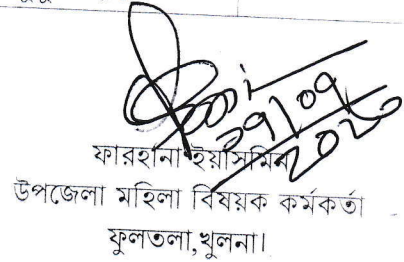 ফারহানা ইয়াসমিন
উপজেলা মহিলা বিষয়ক কর্মকর্তা
ফুলতলা,খুলনা।